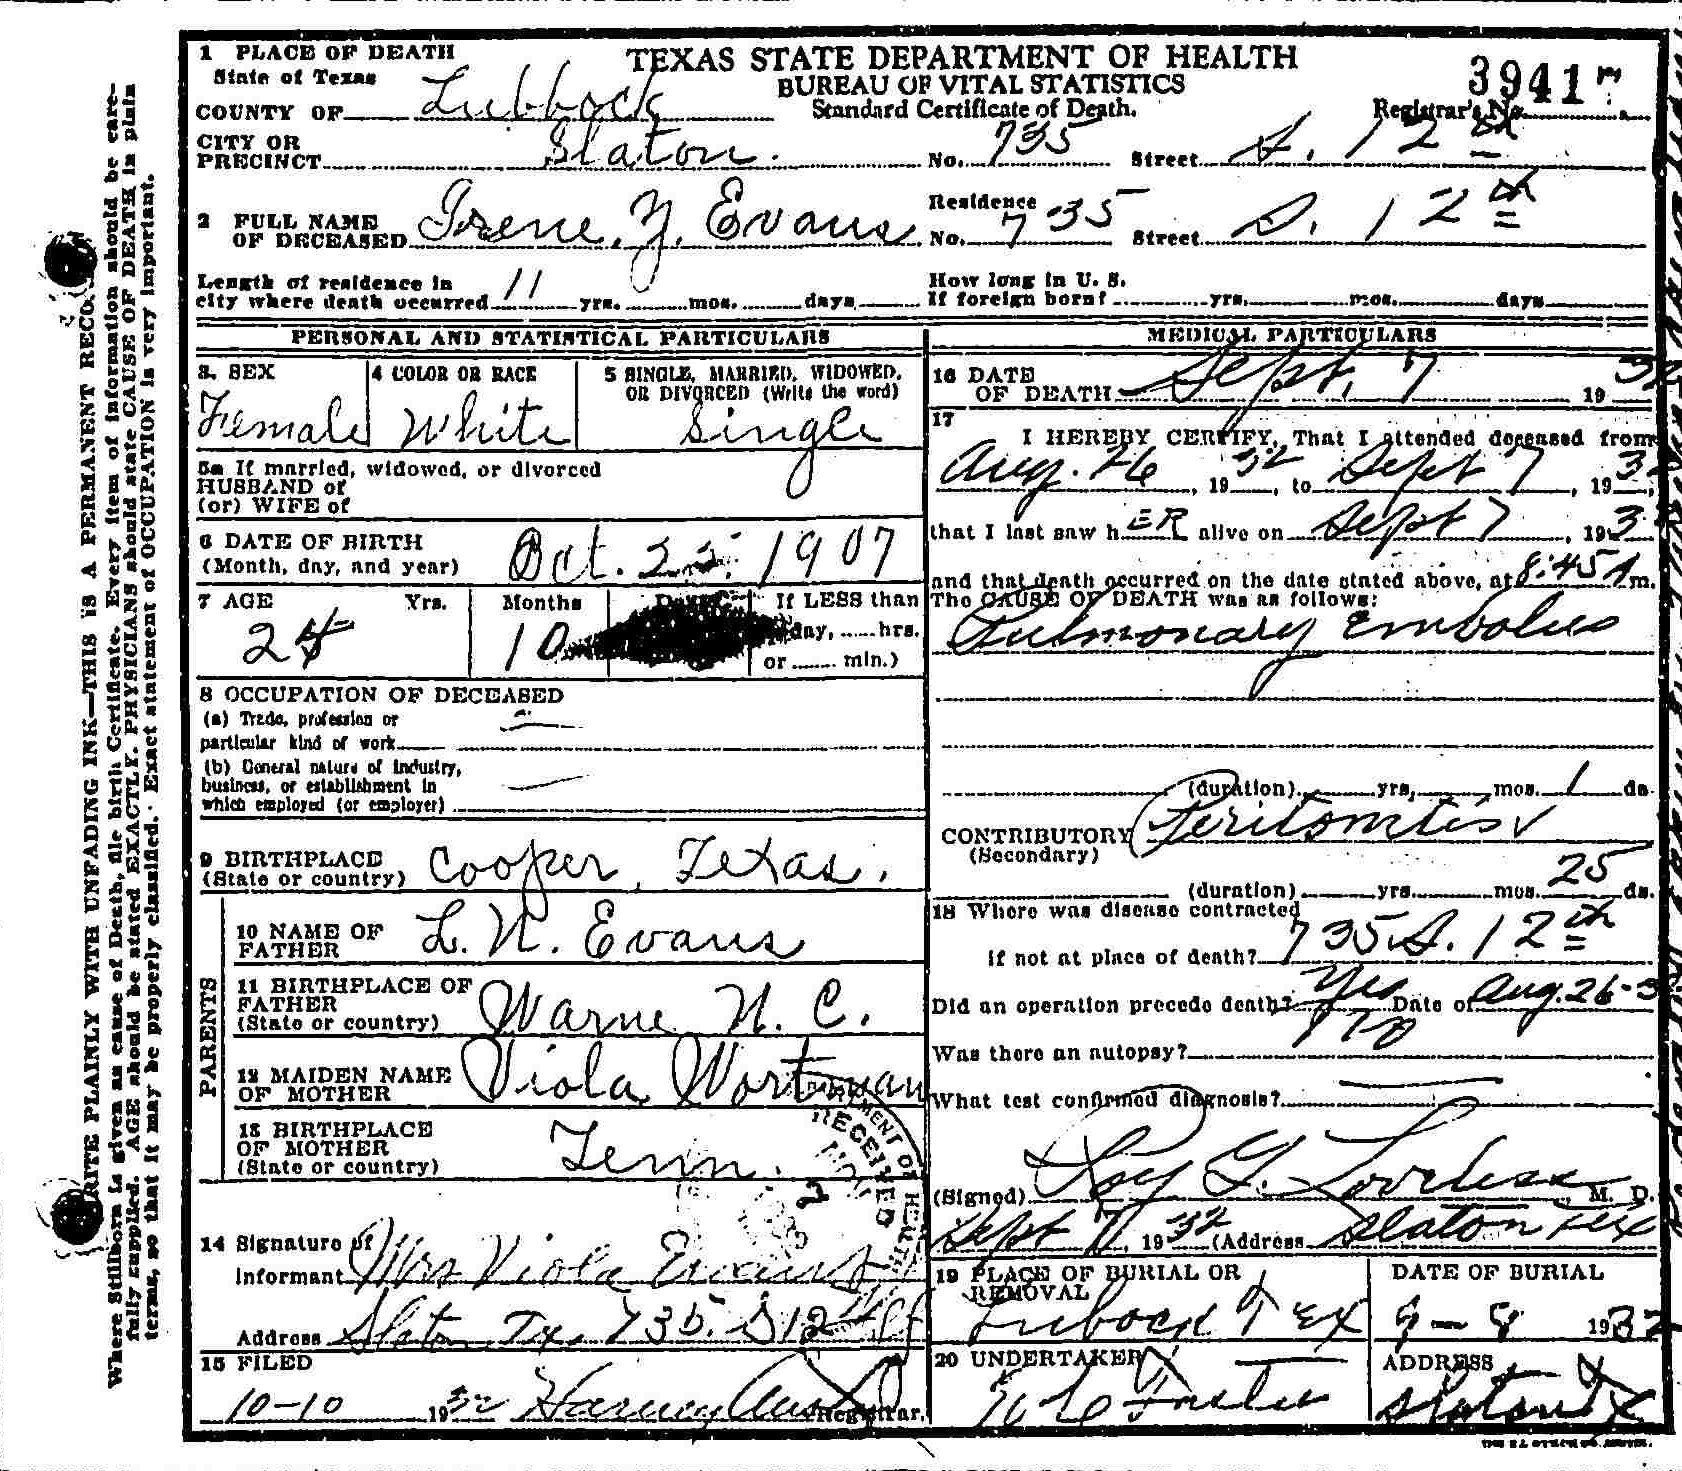 1 PLACE OF DEATH
State of Texas
COUNTY OF Lubbock
CITY OR PRECINCT Slaton.
TEXAS STATE DEPARTMENT OF HEALTH
BUREAU OF VITAL STATISTICS
Standard Certificate of Death.
3941
Registrar's No.
No. 735 Street S. 12th
2 FULL NAME OF DECEASED Irene. Y. Evans
Residence
No. 735 Street S. 12th
Length of residence in
city where death occurred 11 yrs. mos. days
How long in U. S.
If foreign born? yrs. mos. days
PERSONAL AND STATISTICAL PARTICULARS
3. SEX
Female
4 COLOR OR RACE
White
5 SINGLE, MARRIED, WIDOWED,
OR DIVORCED (Write the word)
Single
5a If married, widowed, or divorced
HUSBAND of
(or) WIFE of
6 DATE OF BIRTH
(Month, day, and year) Oct. 1907
7 AGE Yrs. Months Days If LESS than
24 10 day, hrs.
or min.)
8 OCCUPATION OF DECEASED
(a) Trade, profession or
particular kind of work
(b) General nature of industry,
business, or establishment in
which employed (or employer)
9 BIRTHPLACE
(State or country) Cooper, Texas.
PARENTS
10 NAME OF
FATHER L. N. Evans
11 BIRTHPLACE OF
FATHER
(State or country) Warne N. C.
12 MAIDEN NAME
OF MOTHER Viola Wortman
13 BIRTHPLACE
OF MOTHER
(State or country) Tenn.
14 Signature of
Informant Mrs Viola Evans
Address Slaton Tx. 735. S 12th
15 FILED
10-10 1932 Harvey Austin Registrar.
MEDICAL PARTICULARS
16 DATE
OF DEATH Sept. 7 1932
17
I HEREBY CERTIFY, That I attended deceased from
Aug. 26, 1932, to Sept 7, 193
that I last saw hER alive on Sept 7, 193
and that death occurred on the date stated above, at 8:45 A m.
The CAUSE OF DEATH was as follows:
Pulmonary Embolus
(duration) yrs. mos. 1 ds.
CONTRIBUTORY Peritonitis
(Secondary)
(duration) yrs. mos. 25 ds.
18 Where was disease contracted
if not at place of death? 735 S. 12th
Did an operation precede death? Yes Date of Aug. 26-3
Was there an autopsy? No
What test confirmed diagnosis?
(Signed) Roy G. Loveless M. D.
Sept 7, 1932 (Address Slaton Tex
19 PLACE OF BURIAL OR
REMOVAL
Lubbock Tex
DATE OF BURIAL
9-8 1932
20 UNDERTAKER
Foster
ADDRESS
Slaton Tx
RECEIVED
Where Stillborn is given as cause of Death, file birth Certificate. Every item of information should be care-
fully supplied. AGE should be stated EXACTLY. PHYSICIANS should state CAUSE OF DEATH in plain
terms, so that it may be properly classified. Exact statement of OCCUPATION is very important.
WRITE PLAINLY WITH UNFADING INK—THIS IS A PERMANENT RECORD.